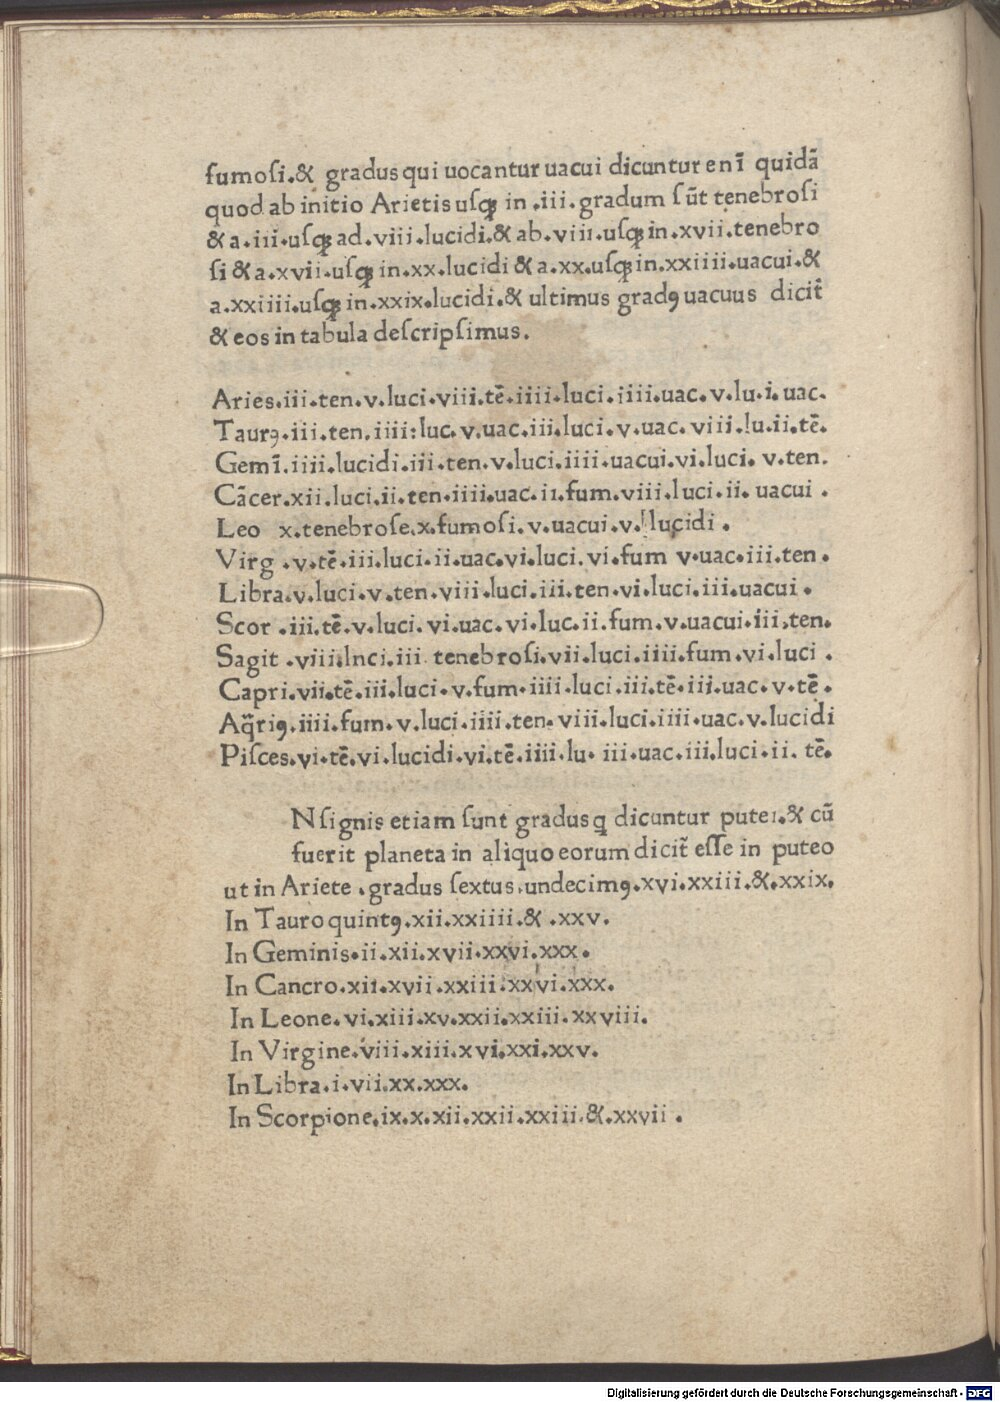 fumoſi.& gradus qui uocantur uacui dicuntur enī quidā
quod ab initio Arietis uſqꝫ in .iii.gradum ſūt tenebroſi
& a.iii.uſqꝫ ad.viii.lucidi.& ab.viii.uſqꝫ in.xvii.tenebro
ſi & a.xvii.uſqꝫ in.xx.lucidi & a.xx.uſqꝫ in.xxiiii.uacui.&
a.xxiiii.uſqꝫ in.xxix.lucidi.& ultimus gradꝰ uacuus dicit̄
& eos in tabula deſcripſimus.
Aries.iii.ten.v.luci.viii.tē.iiii.luci.iiii.uac.v.lu.i.uac.
Taurꝰ.iii.ten.iiii:luc.v.uac.iii.luci.v.uac.viii.lu.ii.tē.
Gemī.iiii.lucidi.iii.ten.v.luci.iiii.uacui.vi.luci. v.ten.
Cācer.xii.luci.ii.ten.iiii.uac.ii.fum.viii.luci.ii. uacui .
Leo x.tenebroſe.x.fumoſi.v.uacui.v.lucidi .
Virg .v.tē.iii.luci.ii.uac.vi.luci.vi.fum v.uac.iii.ten .
Libra.v.luci.v.ten.viii.luci.iii.ten.vi.luci.iii.uacui .
Scor .iii.tē.v.luci.vi.uac.vi.luc.ii.fum.v.uacui.iii.ten.
Sagit .viii.lnci.iii. tenebroſi.vii.luci.iiii.fum.vi.luci .
Capri.vii.tē.iii.luci.v.fum.iiii.luci.iii.tē.iii.uac.v.tē .
Aq̄riꝰ.iiii.fum.v.luci.iiii.ten.viii.luci.iiii.uac.v.lucidi
Piſces.vi.tē.vi.lucidi.vi.tē.iiii.lu. iii.uac.iii.luci.ii. tē.
N ſignis etiam ſunt gradus q dicuntur putei.& cū
fuerit planeta in aliquo eorum dicit̄ eſſe in puteo
ut in Ariete .gradus ſextus.undecimꝰ.xvi.xxiii.&.xxix.
In Tauro quintꝰ.xii.xxiiii.& .xxv.
In Geminis.ii.xii.xvii.xxvi.xxx .
In Cancro.xii.xvii.xxiii.xxvi.xxx.
In Leone.vi.xiii.xv.xxii.xxiii.xxviii.
In Virgine.viii.xiii.xvi.xxi.xxv.
In Libra.i.vii.xx.xxx.
In Scorpione.ix.x.xii.xxii.xxiii.&.xxvii .
Digitalisierung gefördert durch die Deutsche Forschungsgemeinschaft - DFG